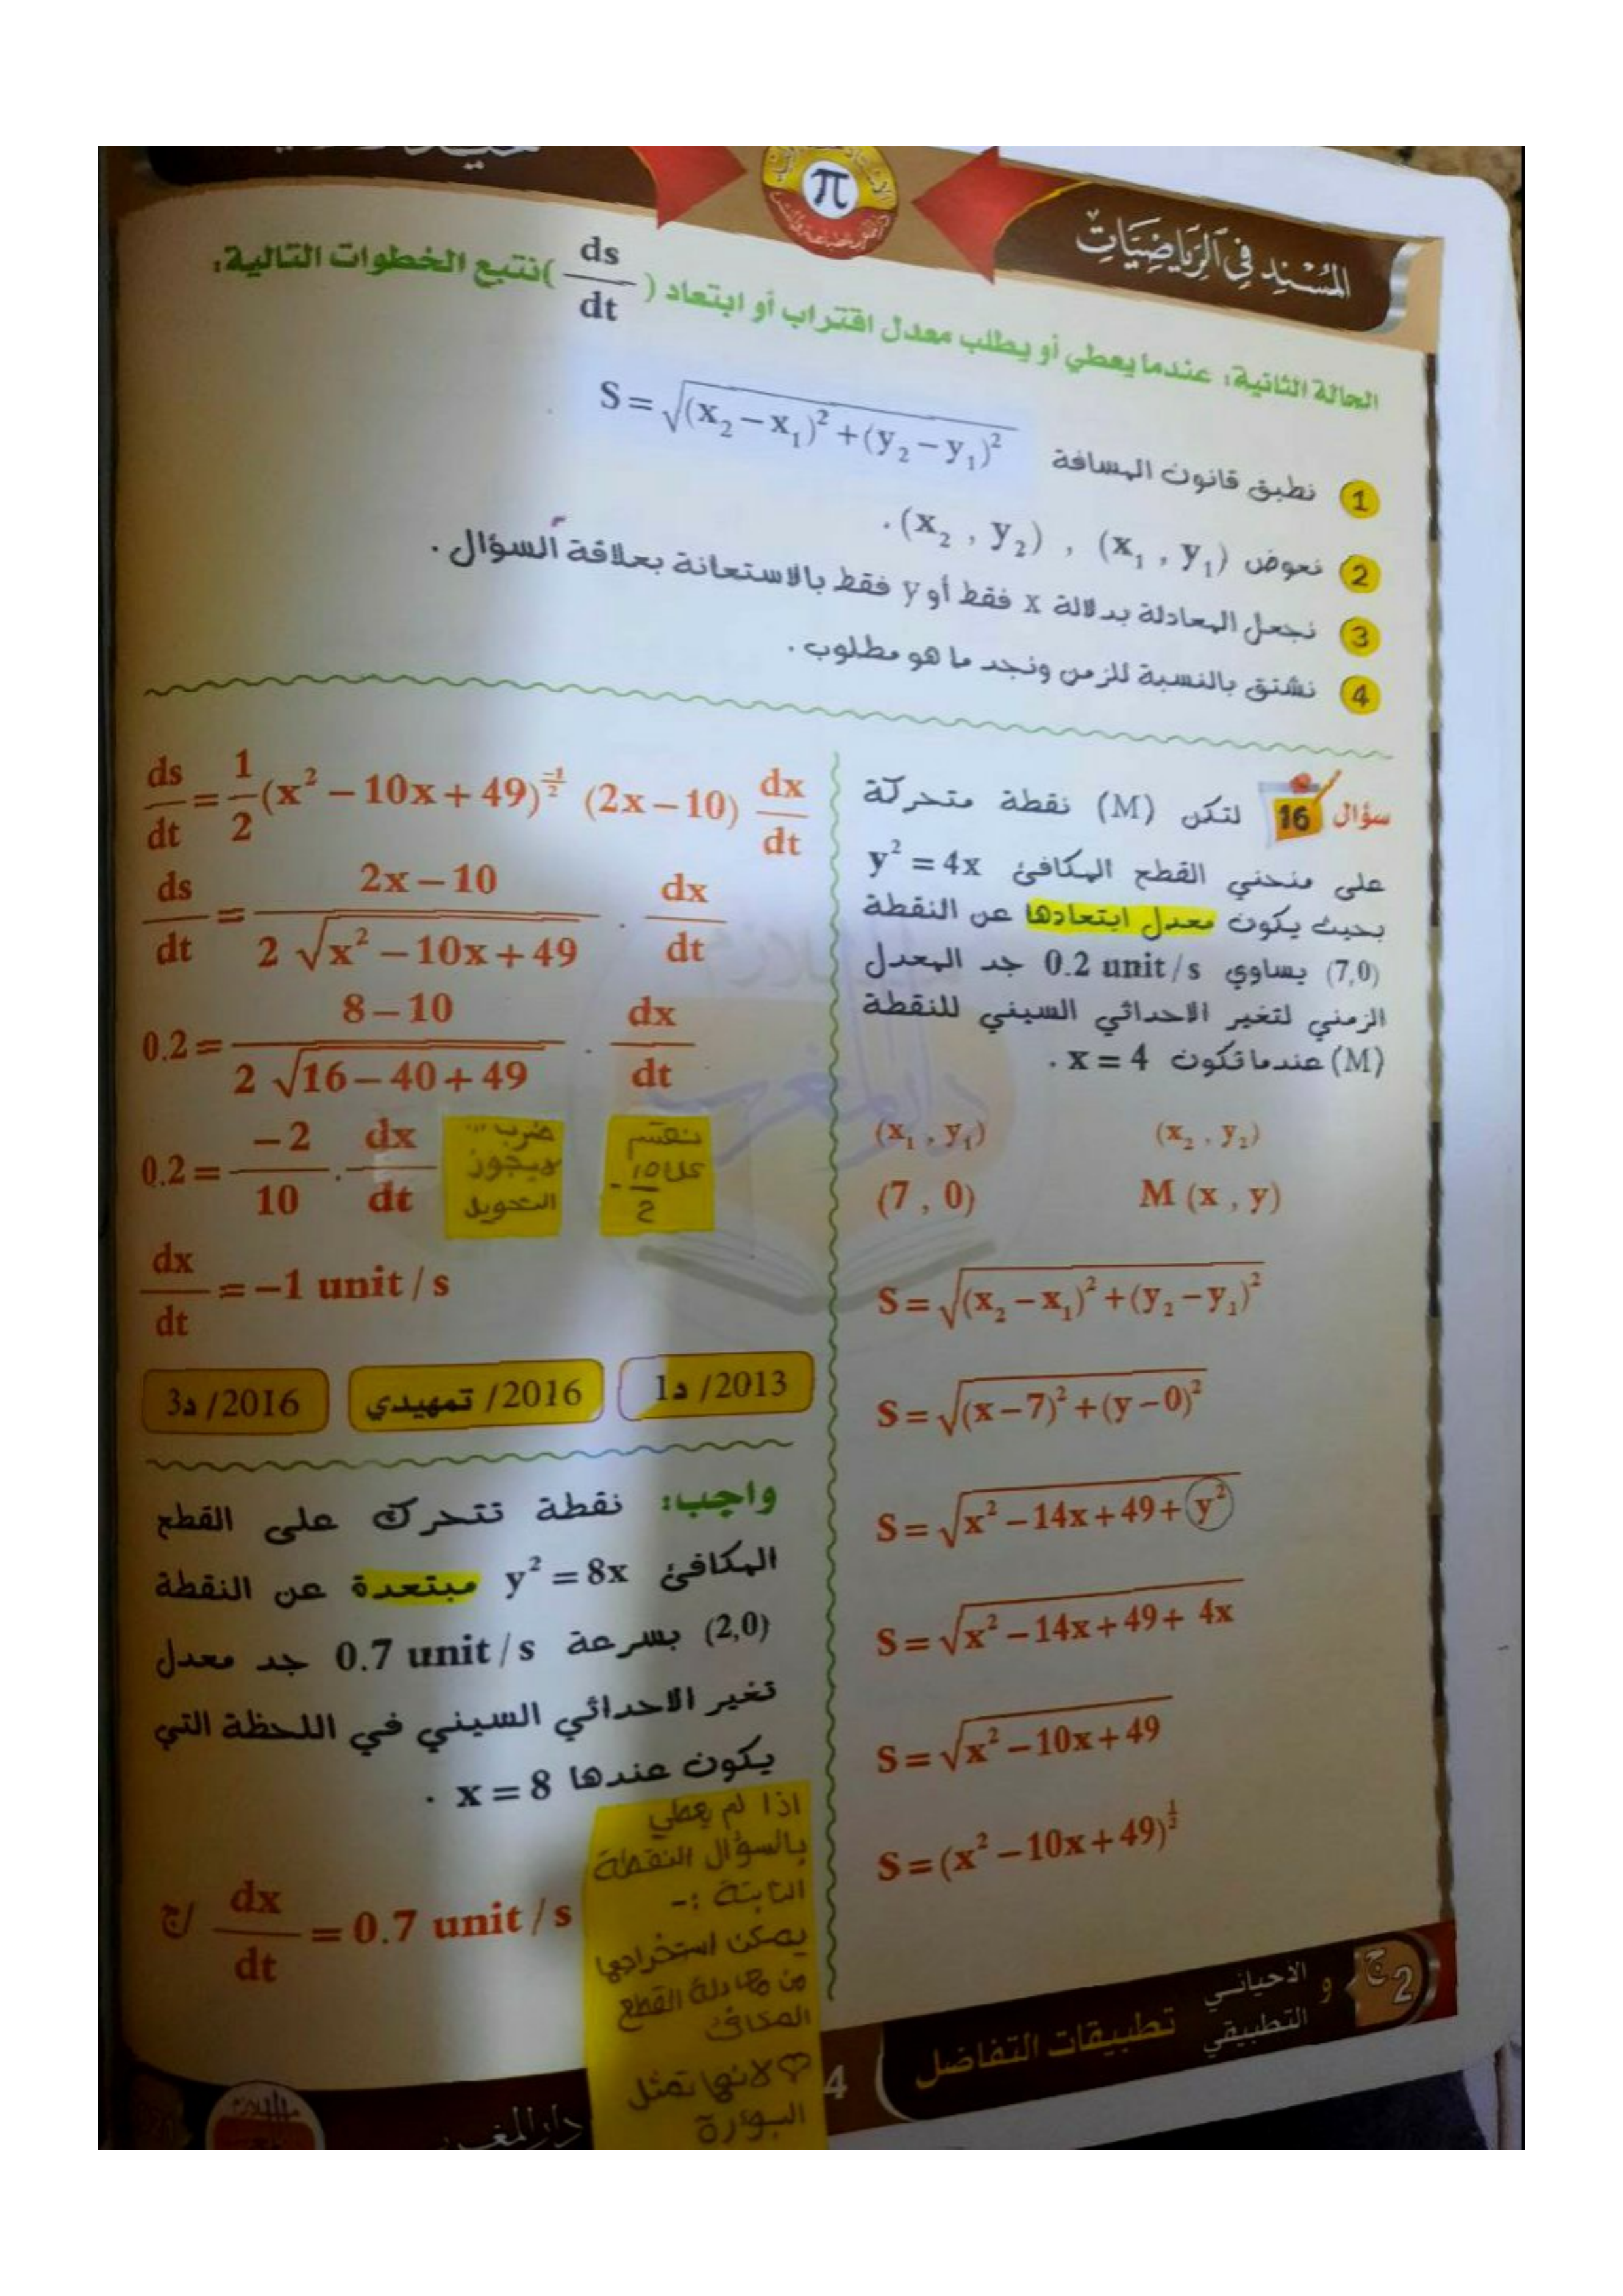 المسند في الرياضيات
π
الحالة الثانية: عندما يعطي أو يطلب معدل اقتراب أو ابتعاد (ds/dt) نتبع الخطوات التالية:
1 نطبق قانون المسافة S = √((x₂ − x₁)² + (y₂ − y₁)²)
2 نعوض (x₁ , y₁) , (x₂ , y₂) .
3 نجعل المعادلة بدلالة x فقط أو y فقط بالاستعانة بعلاقة السؤال .
4 نشتق بالنسبة للزمن ونجد ما هو مطلوب .
سؤال 16 لتكن (M) نقطة متحركة
على منحني القطع المكافئ y² = 4x
بحيث يكون معدل ابتعادها عن النقطة
(7,0) يساوي 0.2 unit/s جد المعدل
الزمني لتغير الاحداثي السيني للنقطة
(M) عندما تكون x = 4 .
(x₁ , y₁) (x₂ , y₂)
(7 , 0) M (x , y)
S = √((x₂ − x₁)² + (y₂ − y₁)²)
S = √((x − 7)² + (y − 0)²)
S = √(x² − 14x + 49 + y²)
S = √(x² − 14x + 49 + 4x)
S = √(x² − 10x + 49)
S = (x² − 10x + 49)^(1/2)
ds/dt = 1/2 (x² − 10x + 49)^(−1/2) (2x − 10) dx/dt
ds/dt = (2x − 10)/(2 √(x² − 10x + 49)) . dx/dt
0.2 = (8 − 10)/(2 √(16 − 40 + 49)) . dx/dt
0.2 = −2/10 . dx/dt
ضرب
لا يجوز
التحويل
نقسم
على 10
- 2
dx/dt = −1 unit / s
2013/ د1
2016/ تمهيدي
2016/ د3
واجب: نقطة تتحرك على القطع
المكافئ y² = 8x مبتعدة عن النقطة
(2,0) بسرعة 0.7 unit / s جد معدل
تغير الاحداثي السيني في اللحظة التي
يكون عندها x = 8 .
ج/ dx/dt = 0.7 unit / s
اذا لم يعطي
بالسؤال النقطة
الثابتة :-
يمكن استخراجها
من معادلة القطع
المكافئ
لانها تمثل
البؤرة
ج2 الاحيائي و التطبيقي
تطبيقات التفاضل
4